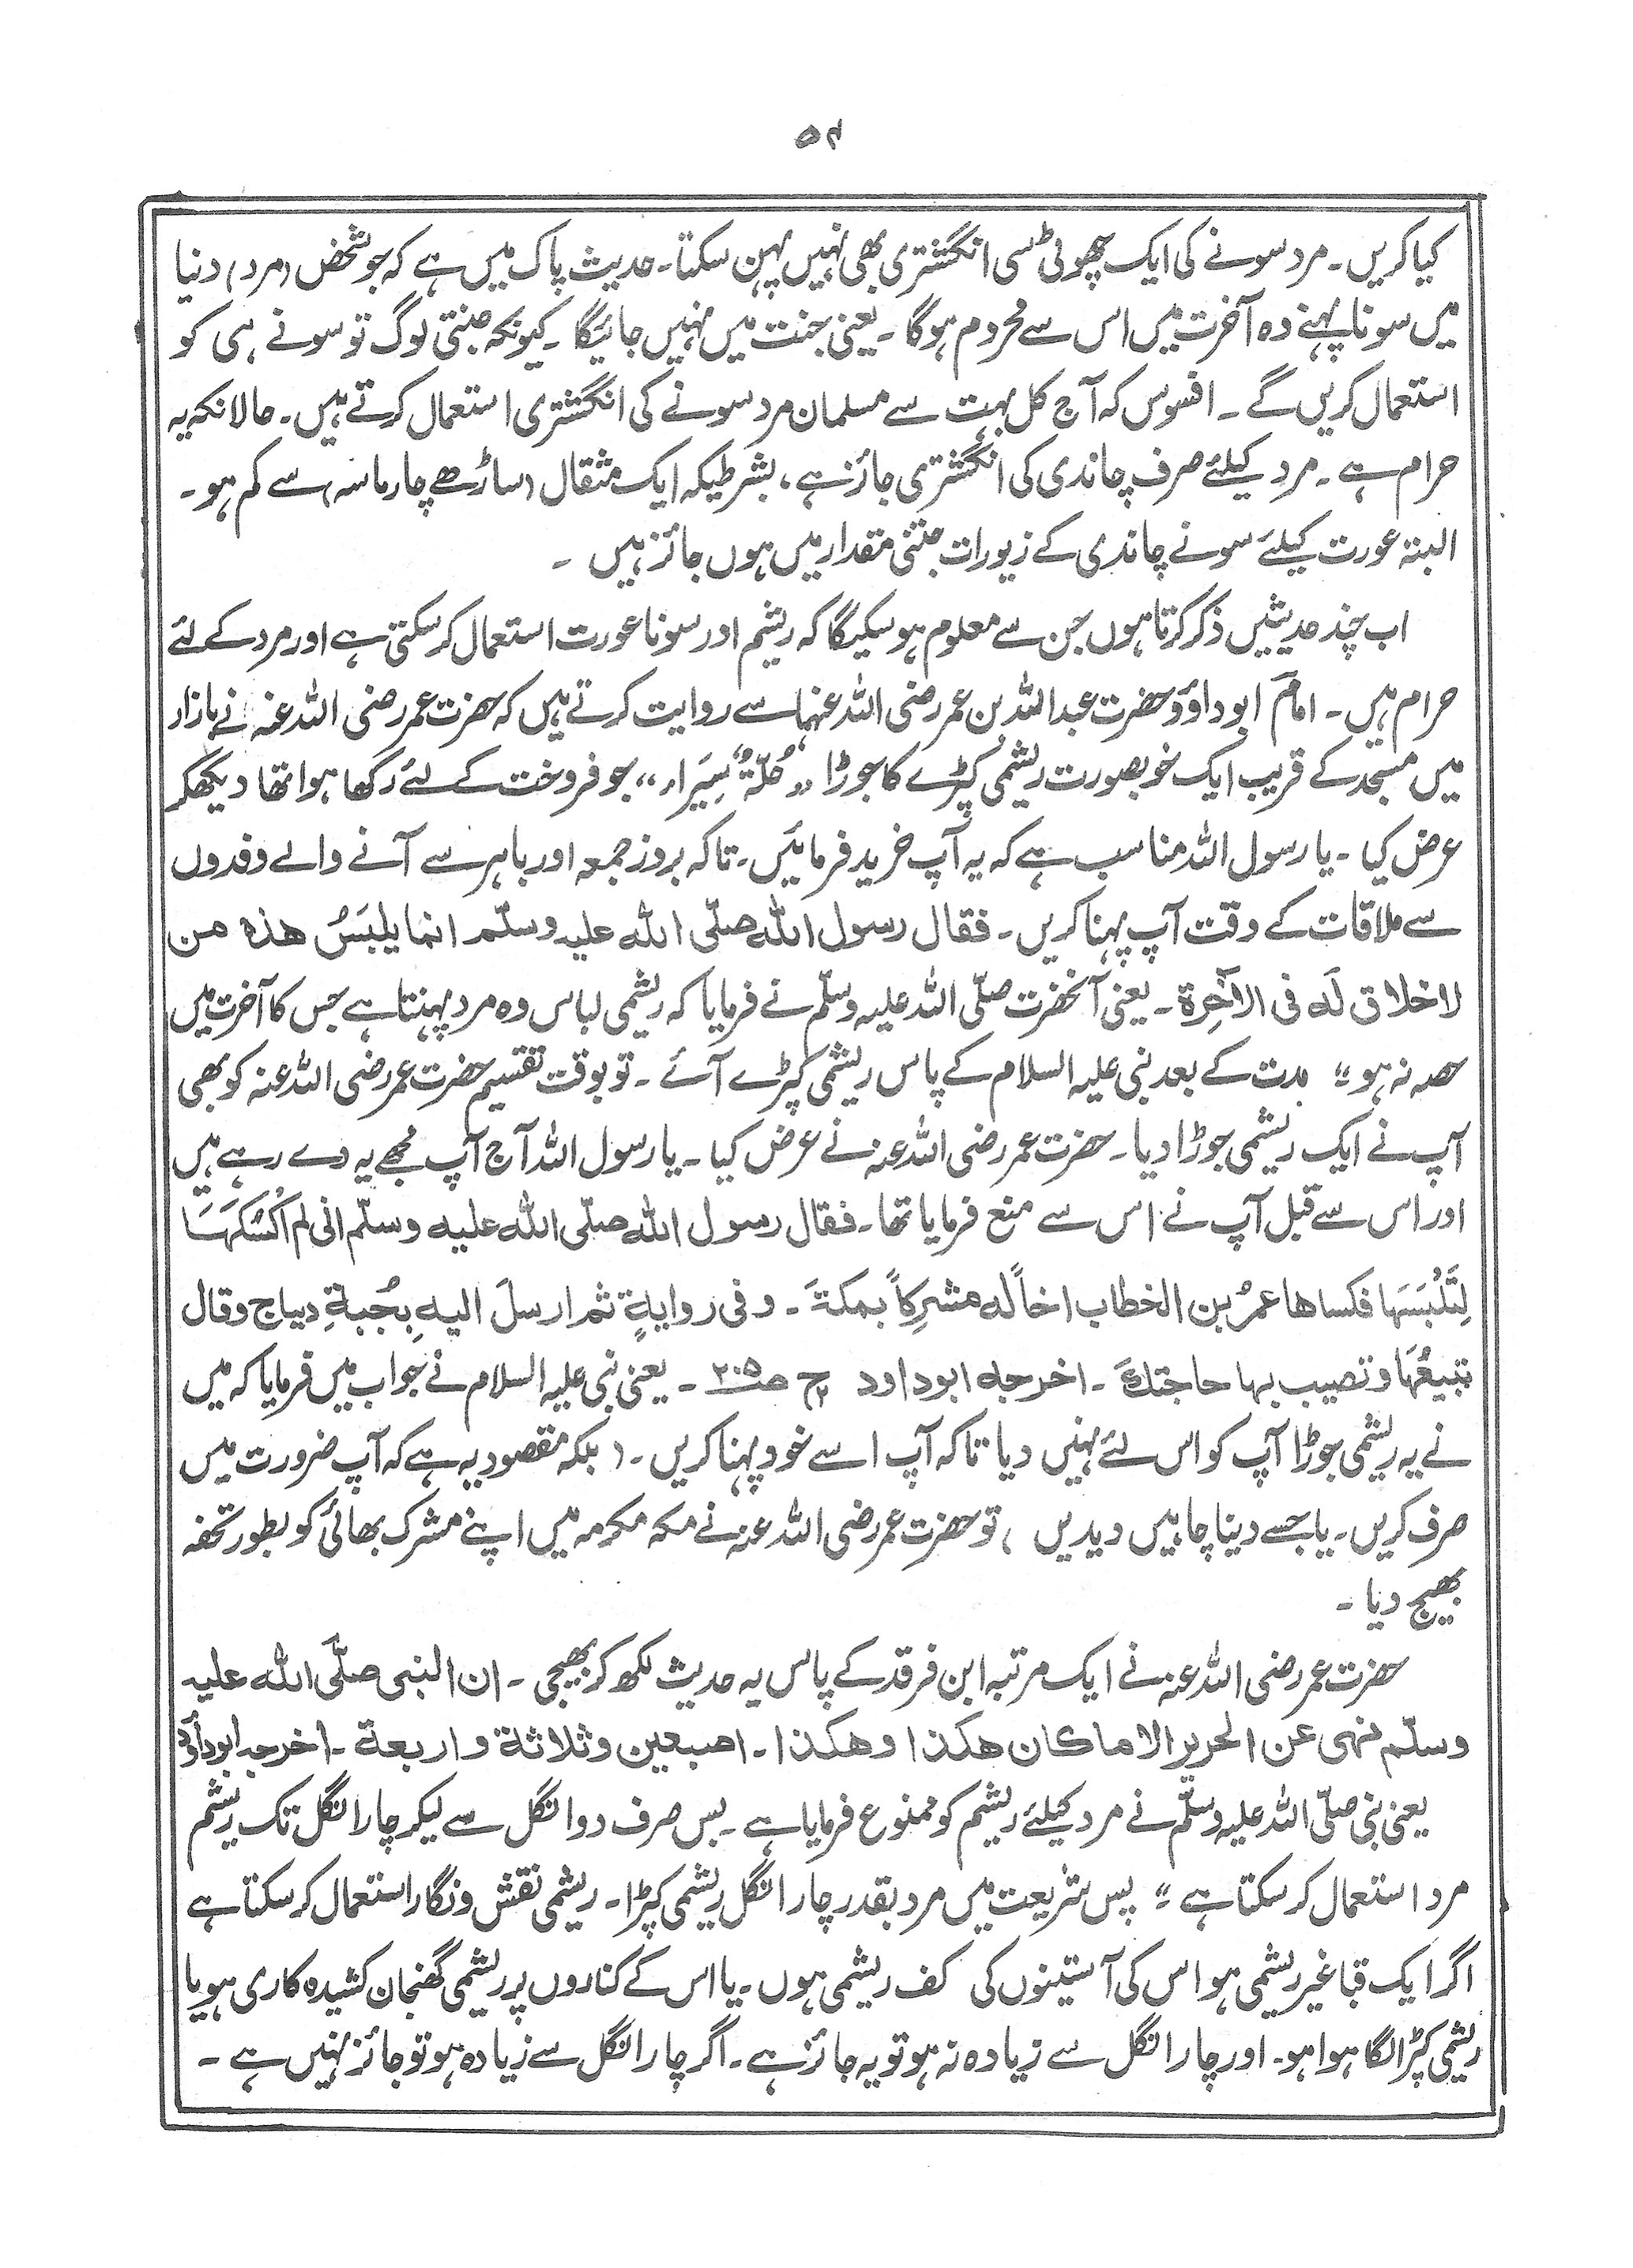 ۵۴
کیا کریں۔ مرد سونے کی ایک چھوٹی سی انگشتری بھی نہیں پہن سکتا۔ حدیث پاک میں ہے کہ جو شخص (مرد) دنیا
میں سونا پہنے وہ آخرت میں اس سے محروم ہوگا۔ یعنی جنت میں نہیں جائیگا۔ کیونکہ جنتی لوگ تو سونے ہی کو
استعمال کریں گے۔ افسوس کہ آج کل بہت سے مسلمان مرد سونے کی انگشتری استعمال کرتے ہیں۔ حالانکہ یہ
حرام ہے۔ مرد کیلئے صرف چاندی کی انگشتری جائز ہے، بشرطیکہ ایک مثقال (ساڑھے چار ماسہ) سے کم ہو۔
البتہ عورت کیلئے سونے چاندی کے زیورات جتنی مقدار میں ہوں جائز ہیں ۔
اب چند حدیثیں ذکر کرتا ہوں جن سے معلوم ہو سکیگا کہ ریشم اور سونا عورت استعمال کر سکتی ہے اور مرد کے لئے
حرام ہیں۔ امام ابوداؤد حضرت عبد اللہ بن عمر رضی اللہ عنہما سے روایت کرتے ہیں کہ حضرت عمر رضی اللہ عنہ نے بازار
میں مسجد کے قریب ایک خوبصورت ریشمی کپڑے کا جوڑا ”حُلّۃٌ سِیَراء“ جو فروخت کے لئے رکھا ہوا تھا دیکھکر
عرض کیا ۔ یا رسول اللہ مناسب ہے کہ یہ آپ خرید فرمائیں۔ تاکہ بروز جمعہ اور باہر سے آنے والے وفدوں
سے ملاقات کے وقت آپ پہنا کریں۔ فقال رسول اللہ صلّی اللہ علیہ وسلّم انما یلبَسُ ھذہ من
لاخلاق لَہ فی الآخِرۃ۔ یعنی آنحضرت صلّی اللہ علیہ وسلّم نے فرمایا کہ ریشمی لباس وہ مرد پہنتا ہے جس کا آخرت میں
حصہ نہ ہو“ مدت کے بعد نبی علیہ السلام کے پاس ریشمی کپڑے آئے ۔ تو بوقت تقسیم حضرت عمر رضی اللہ عنہ کو بھی
آپ نے ایک ریشمی جوڑا دیا۔ حضرت عمر رضی اللہ عنہ نے عرض کیا۔ یا رسول اللہ آج آپ مجھے یہ دے رہے ہیں
اور اس سے قبل آپ نے اس سے منع فرمایا تھا۔ فقال رسول اللہ صلّی اللہ علیہ وسلّم انی لم اَکْسُکَہَا
لِتَلْبَسَہا فکساھا عمرُ بن الخطاب اخاً لہ مشرِکاً بمکۃَ۔ وفی روایۃٍ ثم ارسلَ الیہِ بجُبۃِ دیباج وقال
تبیعُہَا وتصیب بہا حاجتكَ۔ اخرجہ ابوداود ج۲ ص۲۰۵۔ یعنی نبی علیہ السلام نے جواب میں فرمایا کہ میں
نے یہ ریشمی جوڑا آپ کو اس لئے نہیں دیا تاکہ آپ اسے خود پہنا کریں۔ (بلکہ مقصود یہ ہے کہ آپ ضرورت میں
صرف کریں۔ یا جسے دینا چاہیں دیدیں ) تو حضرت عمر رضی اللہ عنہ نے مکہ مکرمہ میں اپنے مشرک بھائی کو بطور تحفہ
بھیج دیا ۔
حضرت عمر رضی اللہ عنہ نے ایک مرتبہ ابن فرقد کے پاس یہ حدیث لکھ کر بھیجی ۔ ان النبی صلّی اللہ علیہ
وسلّم نہی عن الحریر الا ماکان ھکذا وھکذا۔ اصبعین وثلاثۃ واربعۃ ۔ اخرجہ ابوداؤد
یعنی نبی صلّی اللہ علیہ وسلّم نے مرد کیلئے ریشم کو ممنوع فرمایا ہے۔ بس صرف دو انگل سے لیکر چار انگل تک ریشم
مرد استعمال کر سکتا ہے“ پس شریعت میں مرد بقدر چار انگل ریشمی کپڑا۔ ریشمی نقش ونگار استعمال کر سکتا ہے
اگر ایک قبا غیر ریشمی ہو اس کی آستینوں کی کف ریشمی ہوں۔ یا اس کے کناروں پر ریشمی گنجان کشیدہ کاری ہو یا
ریشمی کپڑا لگا ہوا ہو۔ اور چار انگل سے زیادہ نہ ہو تو یہ جائز ہے۔ اگر چار انگل سے زیادہ ہو تو جائز نہیں ہے ۔